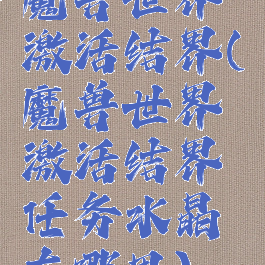 魔兽世界
激活结界(
魔兽世界
激活结界
任务水晶
在哪里)